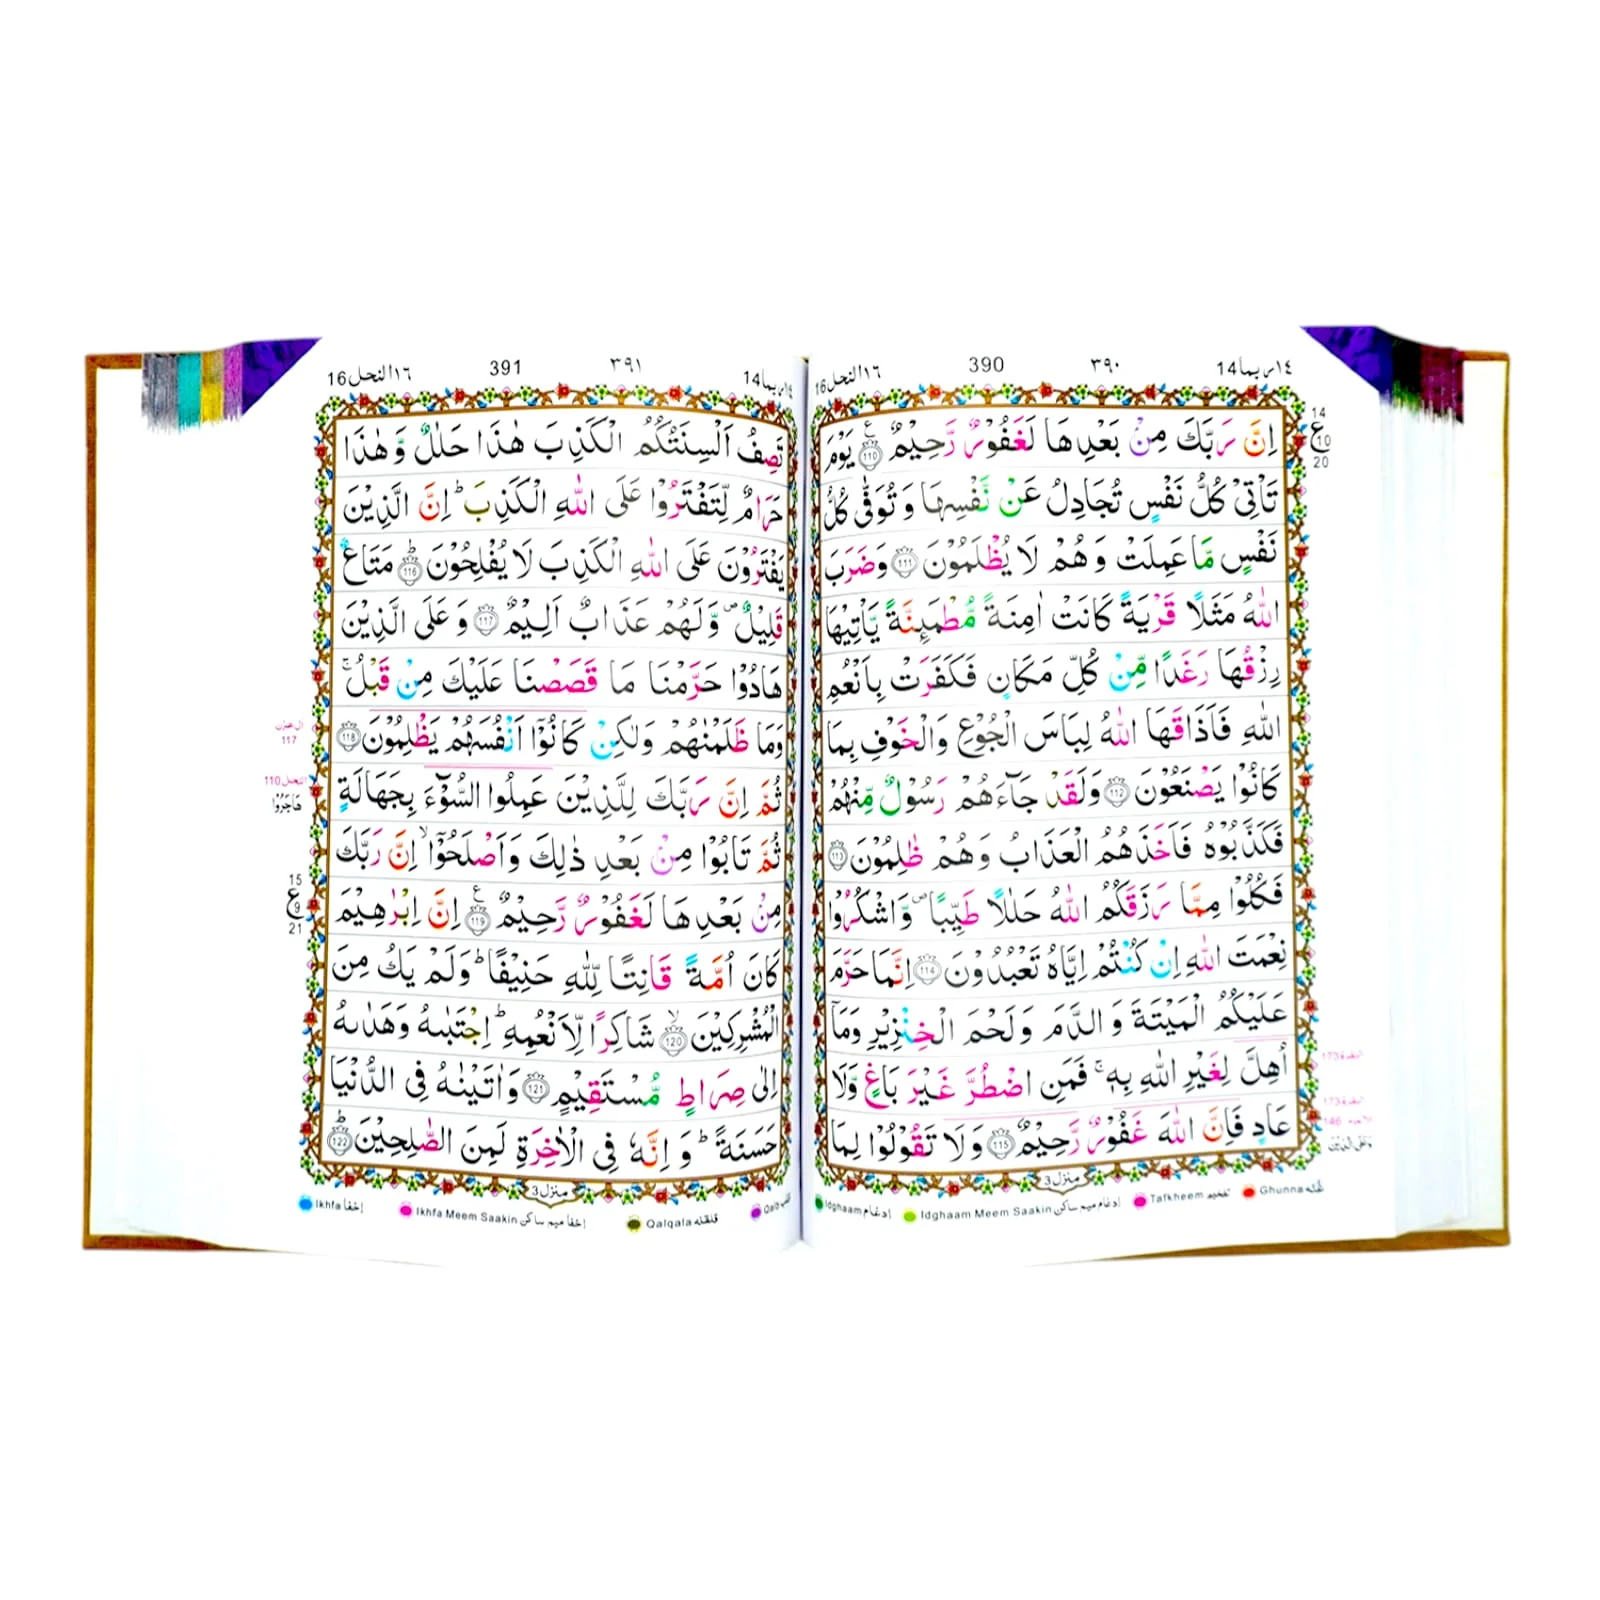 ١٤ ربما 14 ٣٩٠ 390 ١٦ النحل 16
اِنَّ رَبَّكَ مِنْۢ بَعْدِهَا لَغَفُوْرٌ رَّحِيْمٌ ؏ 110 يَوْمَ
تَاْتِىْ كُلُّ نَفْسٍ تُجَادِلُ عَنْ نَّفْسِهَا وَ تُوَفّٰى كُلُّ
نَفْسٍ مَّا عَمِلَتْ وَ هُمْ لَا يُظْلَمُوْنَ 111 وَ ضَرَبَ
اللّٰهُ مَثَلًا قَرْيَةً كَانَتْ اٰمِنَةً مُّطْمَىِٕنَّةً يَّاْتِيْهَا
رِزْقُهَا رَغَدًا مِّنْ كُلِّ مَكَانٍ فَكَفَرَتْ بِاَنْعُمِ
اللّٰهِ فَاَذَاقَهَا اللّٰهُ لِبَاسَ الْجُوْعِ وَالْخَوْفِ بِمَا
كَانُوْا يَصْنَعُوْنَ 112 وَلَقَدْ جَآءَهُمْ رَسُوْلٌ مِّنْهُمْ
فَكَذَّبُوْهُ فَاَخَذَهُمُ الْعَذَابُ وَ هُمْ ظٰلِمُوْنَ 113
فَكُلُوْا مِمَّا رَزَقَكُمُ اللّٰهُ حَلٰلًا طَيِّبًا ۪ وَّاشْكُرُوْا
نِعْمَتَ اللّٰهِ اِنْ كُنْتُمْ اِيَّاهُ تَعْبُدُوْنَ 114 اِنَّمَا حَرَّمَ
عَلَيْكُمُ الْمَيْتَةَ وَ الدَّمَ وَ لَحْمَ الْخِنْزِيْرِ وَمَاۤ
اُهِلَّ لِغَيْرِ اللّٰهِ بِهٖ ۚ فَمَنِ اضْطُرَّ غَيْرَ بَاغٍ وَّلَا
عَادٍ فَاِنَّ اللّٰهَ غَفُوْرٌ رَّحِيْمٌ 115 وَ لَا تَقُوْلُوْا لِمَا
منزل 3
Ghunna غُنّه Tafkheem تفخيم Idghaam Meem Saakin إدغام ميم ساكن Idghaam إدغام
14
ع
10
20
البقرة 173
البقرة 173
146
١٤ ربما 14 ٣٩١ 391 ١٦ النحل 16
تَصِفُ اَلْسِنَتُكُمُ الْكَذِبَ هٰذَا حَلٰلٌ وَّ هٰذَا
حَرَامٌ لِّتَفْتَرُوْا عَلَى اللّٰهِ الْكَذِبَ ؕ اِنَّ الَّذِيْنَ
يَفْتَرُوْنَ عَلَى اللّٰهِ الْكَذِبَ لَا يُفْلِحُوْنَ ؕ 116 مَتَاعٌ
قَلِيْلٌ ۪ وَّ لَهُمْ عَذَابٌ اَلِيْمٌ 117 وَ عَلَى الَّذِيْنَ
هَادُوْا حَرَّمْنَا مَا قَصَصْنَا عَلَيْكَ مِنْ قَبْلُ ۚ
وَمَا ظَلَمْنٰهُمْ وَلٰكِنْ كَانُوْۤا اَنْفُسَهُمْ يَظْلِمُوْنَ 118
ثُمَّ اِنَّ رَبَّكَ لِلَّذِيْنَ عَمِلُوا السُّوْٓءَ بِجَهَالَةٍ
ثُمَّ تَابُوْا مِنْۢ بَعْدِ ذٰلِكَ وَ اَصْلَحُوْۤا ۙ اِنَّ رَبَّكَ
مِنْۢ بَعْدِهَا لَغَفُوْرٌ رَّحِيْمٌ ؏ 119 اِنَّ اِبْرٰهِيْمَ
كَانَ اُمَّةً قَانِتًا لِّلّٰهِ حَنِيْفًا ؕ وَلَمْ يَكُ مِنَ
الْمُشْرِكِيْنَ ۙ 120 شَاكِرًا لِّاَنْعُمِهٖ ؕ اِجْتَبٰىهُ وَ هَدٰىهُ
اِلٰى صِرَاطٍ مُّسْتَقِيْمٍ 121 وَ اٰتَيْنٰهُ فِى الدُّنْيَا
حَسَنَةً ؕ وَ اِنَّهٗ فِى الْاٰخِرَةِ لَمِنَ الصّٰلِحِيْنَ ؕ 122
منزل 3
Qalb قلب Qalqala قلقله Ikhfa Meem Saakin إخفا ميم ساكن Ikhfa إخفا
117
النحل 110
هَاجَرُوْا
15
ع
9
21